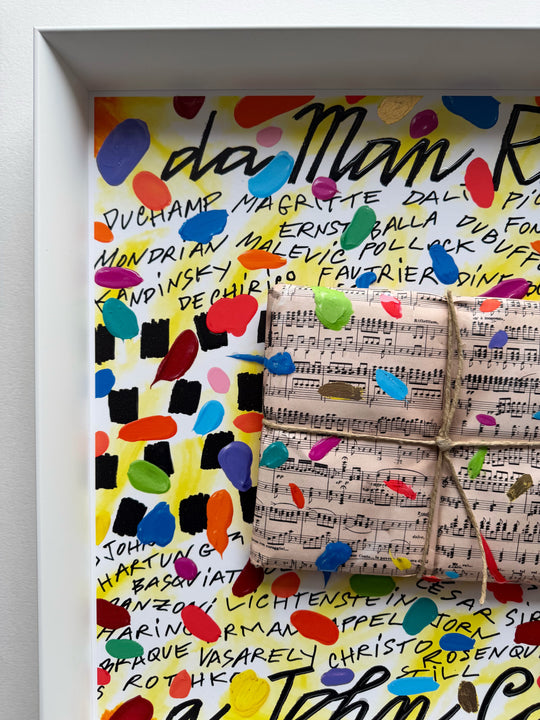 da Man R
DUCHAMP MAGRITTE DALI
ERNST BALLA DUBUF
MONDRIAN MALEVIC POLLOCK BUFF
KANDINSKY FAUTRIER DINE
DE CHIRICO
JOHN
HARTUNG
BASQUIAT
MANZONI LICHTENSTEIN CESAR
HARING ARMAN APPEL JORN SIR
BRAQUE VASARELY CHRISTO ROSENQU
ROTHKO STILL
a John Ca